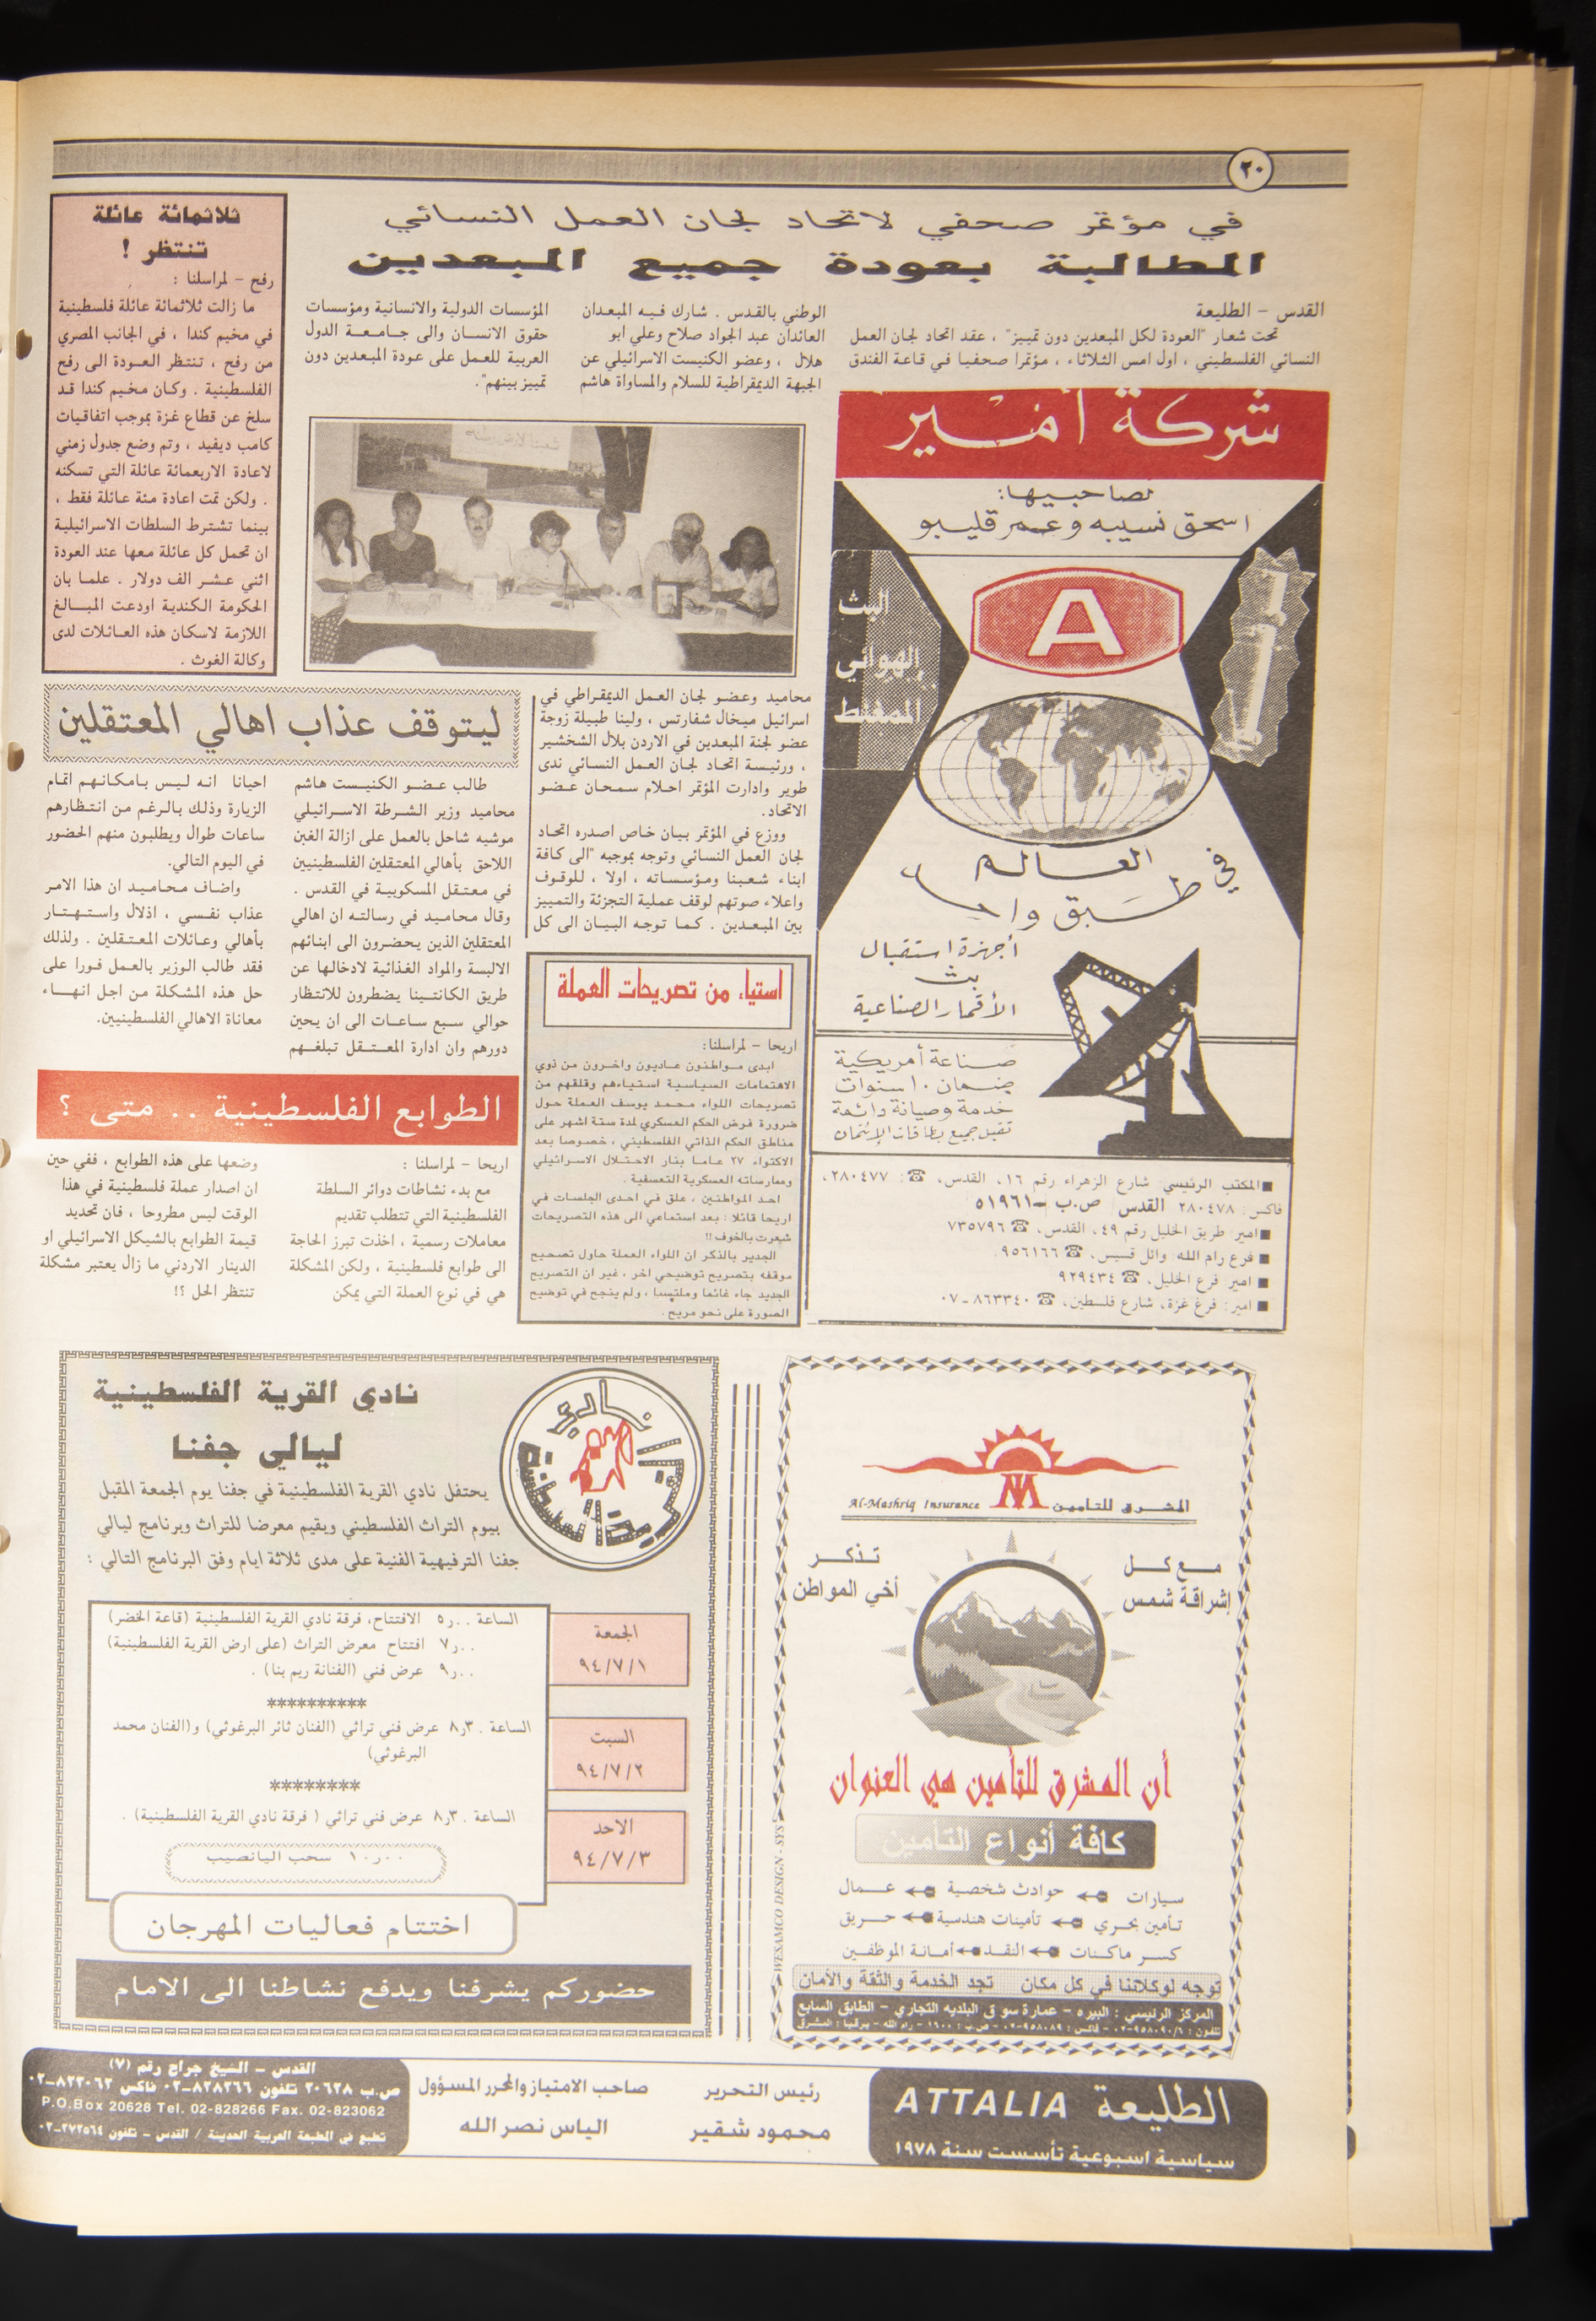 ٢٠
في مؤتمر صحفي لاتحاد لجان العمل النسائي
المطالبة بعودة جميع المبعدين
القدس - الطليعة
تحت شعار "العودة لكل المبعدين دون تمييز" ، عقد اتحاد لجان العمل
النسائي الفلسطيني ، اول امس الثلاثاء ، مؤتمرا صحفيا في قاعة الفندق
الوطني بالقدس . شارك فيه المبعدان
العائدان عبد الجواد صلاح وعلي ابو
هلال ، وعضو الكنيست الاسرائيلي عن
الجبهة الديمقراطية للسلام والمساواة هاشم
محاميد وعضو لجان العمل الديمقراطي في
اسرائيل ميخال شفارتس ، ولينا طبيلة زوجة
عضو لجنة المبعدين في الاردن بلال الشخشير
، ورئيسة اتحاد لجان العمل النسائي ندى
طوير وادارت المؤتمر احلام سمحان عضو
الاتحاد.
ووزع في المؤتمر بيان خاص اصدره اتحاد
لجان العمل النسائي وتوجه بموجبه "الى كافة
ابناء شعبنا ومؤسساته ، اولا ، للوقوف
واعلاء صوتهم لوقف عملية التجزئة والتمييز
بين المبعدين . كما توجه البيان الى كل
المؤسسات الدولية والانسانية ومؤسسات
حقوق الانسان والى جامعة الدول
العربية للعمل على عودة المبعدين دون
تمييز بينهم".
ثلاثمائة عائلة
تنتظر !
رفح - لمراسلنا :
ما زالت ثلاثمائة عائلة فلسطينية
في مخيم كندا ، في الجانب المصري
من رفح ، تنتظر العودة الى رفح
الفلسطينية . وكان مخيم كندا قد
سلخ عن قطاع غزة بموجب اتفاقيات
كامب ديفيد ، وتم وضع جدول زمني
لاعادة الاربعمائة عائلة التي تسكنه
. ولكن تمت اعادة مئة عائلة فقط ،
بينما تشترط السلطات الاسرائيلية
ان تحمل كل عائلة معها عند العودة
اثني عشر الف دولار . علما بان
الحكومة الكندية اودعت المبالغ
اللازمة لاسكان هذه العائلات لدى
وكالة الغوث .
شركة أمير
لصاحبيها:
اسحق نسيبه وعمر قليبو
A
البث
الهوائي
الملتقط
العالم
في طبق واحد
أجهزة استقبال
بث
الأقمار الصناعية
صناعة أمريكية
ضمان ١٠ سنوات
خدمة وصيانة دائمة
تقبل جميع بطاقات الإئتمان
■ المكتب الرئيسي: شارع الزهراء رقم ١٦، القدس، ☎: ٢٨٠٤٧٧،
فاكس: ٢٨٠٤٧٨ القدس ص.ب ٥١٩٦١
■ امير: طريق الخليل رقم ٤٩، القدس، ☎ ٧٣٥٧٩٦
■ فرع رام الله: وائل قسيس، ☎ ٩٥٦١٦٦
■ امير: فرع الخليل، ☎ ٩٢٩٤٣٤
■ امير: فرع غزة، شارع فلسطين، ☎ ٨٦٣٣٤٠-٠٧
ليتوقف عذاب اهالي المعتقلين
طالب عضو الكنيست هاشم
محاميد وزير الشرطة الاسرائيلي
موشيه شاحل بالعمل على ازالة الغبن
اللاحق بأهالي المعتقلين الفلسطينيين
في معتقل المسكوبية في القدس .
وقال محاميد في رسالته ان اهالي
المعتقلين الذين يحضرون الى ابنائهم
الالبسة والمواد الغذائية لادخالها عن
طريق الكانتينا يضطرون للانتظار
حوالي سبع ساعات الى ان يحين
دورهم وان ادارة المعتقل تبلغهم
احيانا انه ليس بامكانهم اتمام
الزيارة وذلك بالرغم من انتظارهم
ساعات طوال ويطلبون منهم الحضور
في اليوم التالي.
واضاف محاميد ان هذا الامر
عذاب نفسي ، اذلال واستهتار
بأهالي وعائلات المعتقلين . ولذلك
فقد طالب الوزير بالعمل فورا على
حل هذه المشكلة من اجل انهاء
معاناة الاهالي الفلسطينيين.
استياء من تصريحات العملة
اريحا - لمراسلنا:
ابدى مواطنون عاديون واخرون من ذوي
الاهتمامات السياسية استياءهم وقلقهم من
تصريحات اللواء محمد يوسف العملة حول
ضرورة فرض الحكم العسكري لمدة ستة اشهر على
مناطق الحكم الذاتي الفلسطيني ، خصوصا بعد
الاكتواء ٢٧ عاما بنار الاحتلال الاسرائيلي
وممارساته العسكرية التعسفية .
احد المواطنين ، علق في احدى الجلسات في
اريحا قائلا : بعد استماعي الى هذه التصريحات
شعرت بالخوف !!
الجدير بالذكر ان اللواء العملة حاول تصحيح
موقفه بتصريح توضيحي اخر ، غير ان التصريح
الجديد جاء غائما وملتبسا ، ولم ينجح في توضيح
الصورة على نحو مريح .
الطوابع الفلسطينية .. متى ؟
اريحا - لمراسلنا :
مع بدء نشاطات دوائر السلطة
الفلسطينية التي تتطلب تقديم
معاملات رسمية ، اخذت تبرز الحاجة
الى طوابع فلسطينية ، ولكن المشكلة
هي في نوع العملة التي يمكن
وضعها على هذه الطوابع ، ففي حين
ان اصدار عملة فلسطينية في هذا
الوقت ليس مطروحا ، فان تحديد
قيمة الطوابع بالشيكل الاسرائيلي او
الدينار الاردني ما زال يعتبر مشكلة
تنتظر الحل ؟!
نادي القرية الفلسطينية
نادي القرية الفلسطينية
ليالي جفنا
يحتفل نادي القرية الفلسطينية في جفنا يوم الجمعة المقبل
بيوم التراث الفلسطيني ويقيم معرضا للتراث وبرنامج ليالي
جفنا الترفيهية الفنية على مدى ثلاثة ايام وفق البرنامج التالي :
الجمعة
٩٤/٧/١
الساعة ٥ر.. الافتتاح، فرقة نادي القرية الفلسطينية (قاعة الخضر)
٧ر.. افتتاح معرض التراث (على ارض القرية الفلسطينية)
٩ر.. عرض فني (الفنانة ريم بنا) .
**********
السبت
٩٤/٧/٢
الساعة ٨ر٣. عرض فني تراثي (الفنان ثائر البرغوثي) و(الفنان محمد
البرغوثي)
********
الاحد
٩٤/٧/٣
الساعة ٨ر٣. عرض فني تراثي ( فرقة نادي القرية الفلسطينية) .
١٠ر.. سحب اليانصيب
اختتام فعاليات المهرجان
حضوركم يشرفنا ويدفع نشاطنا الى الامام
المشرق للتأمين Al-Mashriq Insurance
مع كل
إشراقة شمس
تذكر
أخي المواطن
أن المشرق للتأمين هي العنوان
كافة أنواع التأمين
سيارات حوادث شخصية عمال
تأمين بحري تأمينات هندسية حريق
كسر ماكنات النقد أمانة الموظفين
توجه لوكلائنا في كل مكان تجد الخدمة والثقة والأمان
المركز الرئيسي : البيره - عمارة سوق البلديه التجاري - الطابق السابع
تلفون : ٩٥٨٠٩٠/٦-٠٢ - فاكس : ٩٥٨٠٨٩-٠٢ - ص.ب : ١٦٠٠ - رام الله - برقيا : المشرق
WESAMCO DESIGN - SYS
الطليعة ATTALIA
سياسية اسبوعية تأسست سنة ١٩٧٨
رئيس التحرير
محمود شقير
صاحب الامتياز والمحرر المسؤول
الياس نصر الله
القدس - الشيخ جراح رقم (٧)
ص.ب ٢٠٦٢٨ تلفون ٨٢٨٢٦٦-٠٢ فاكس ٨٢٣٠٦٢-٠٢
P.O.Box 20628 Tel. 02-828266 Fax. 02-823062
تطبع في المطبعة العربية الحديثة / القدس - تلفون ٢٧٢٥٦٤-٠٢